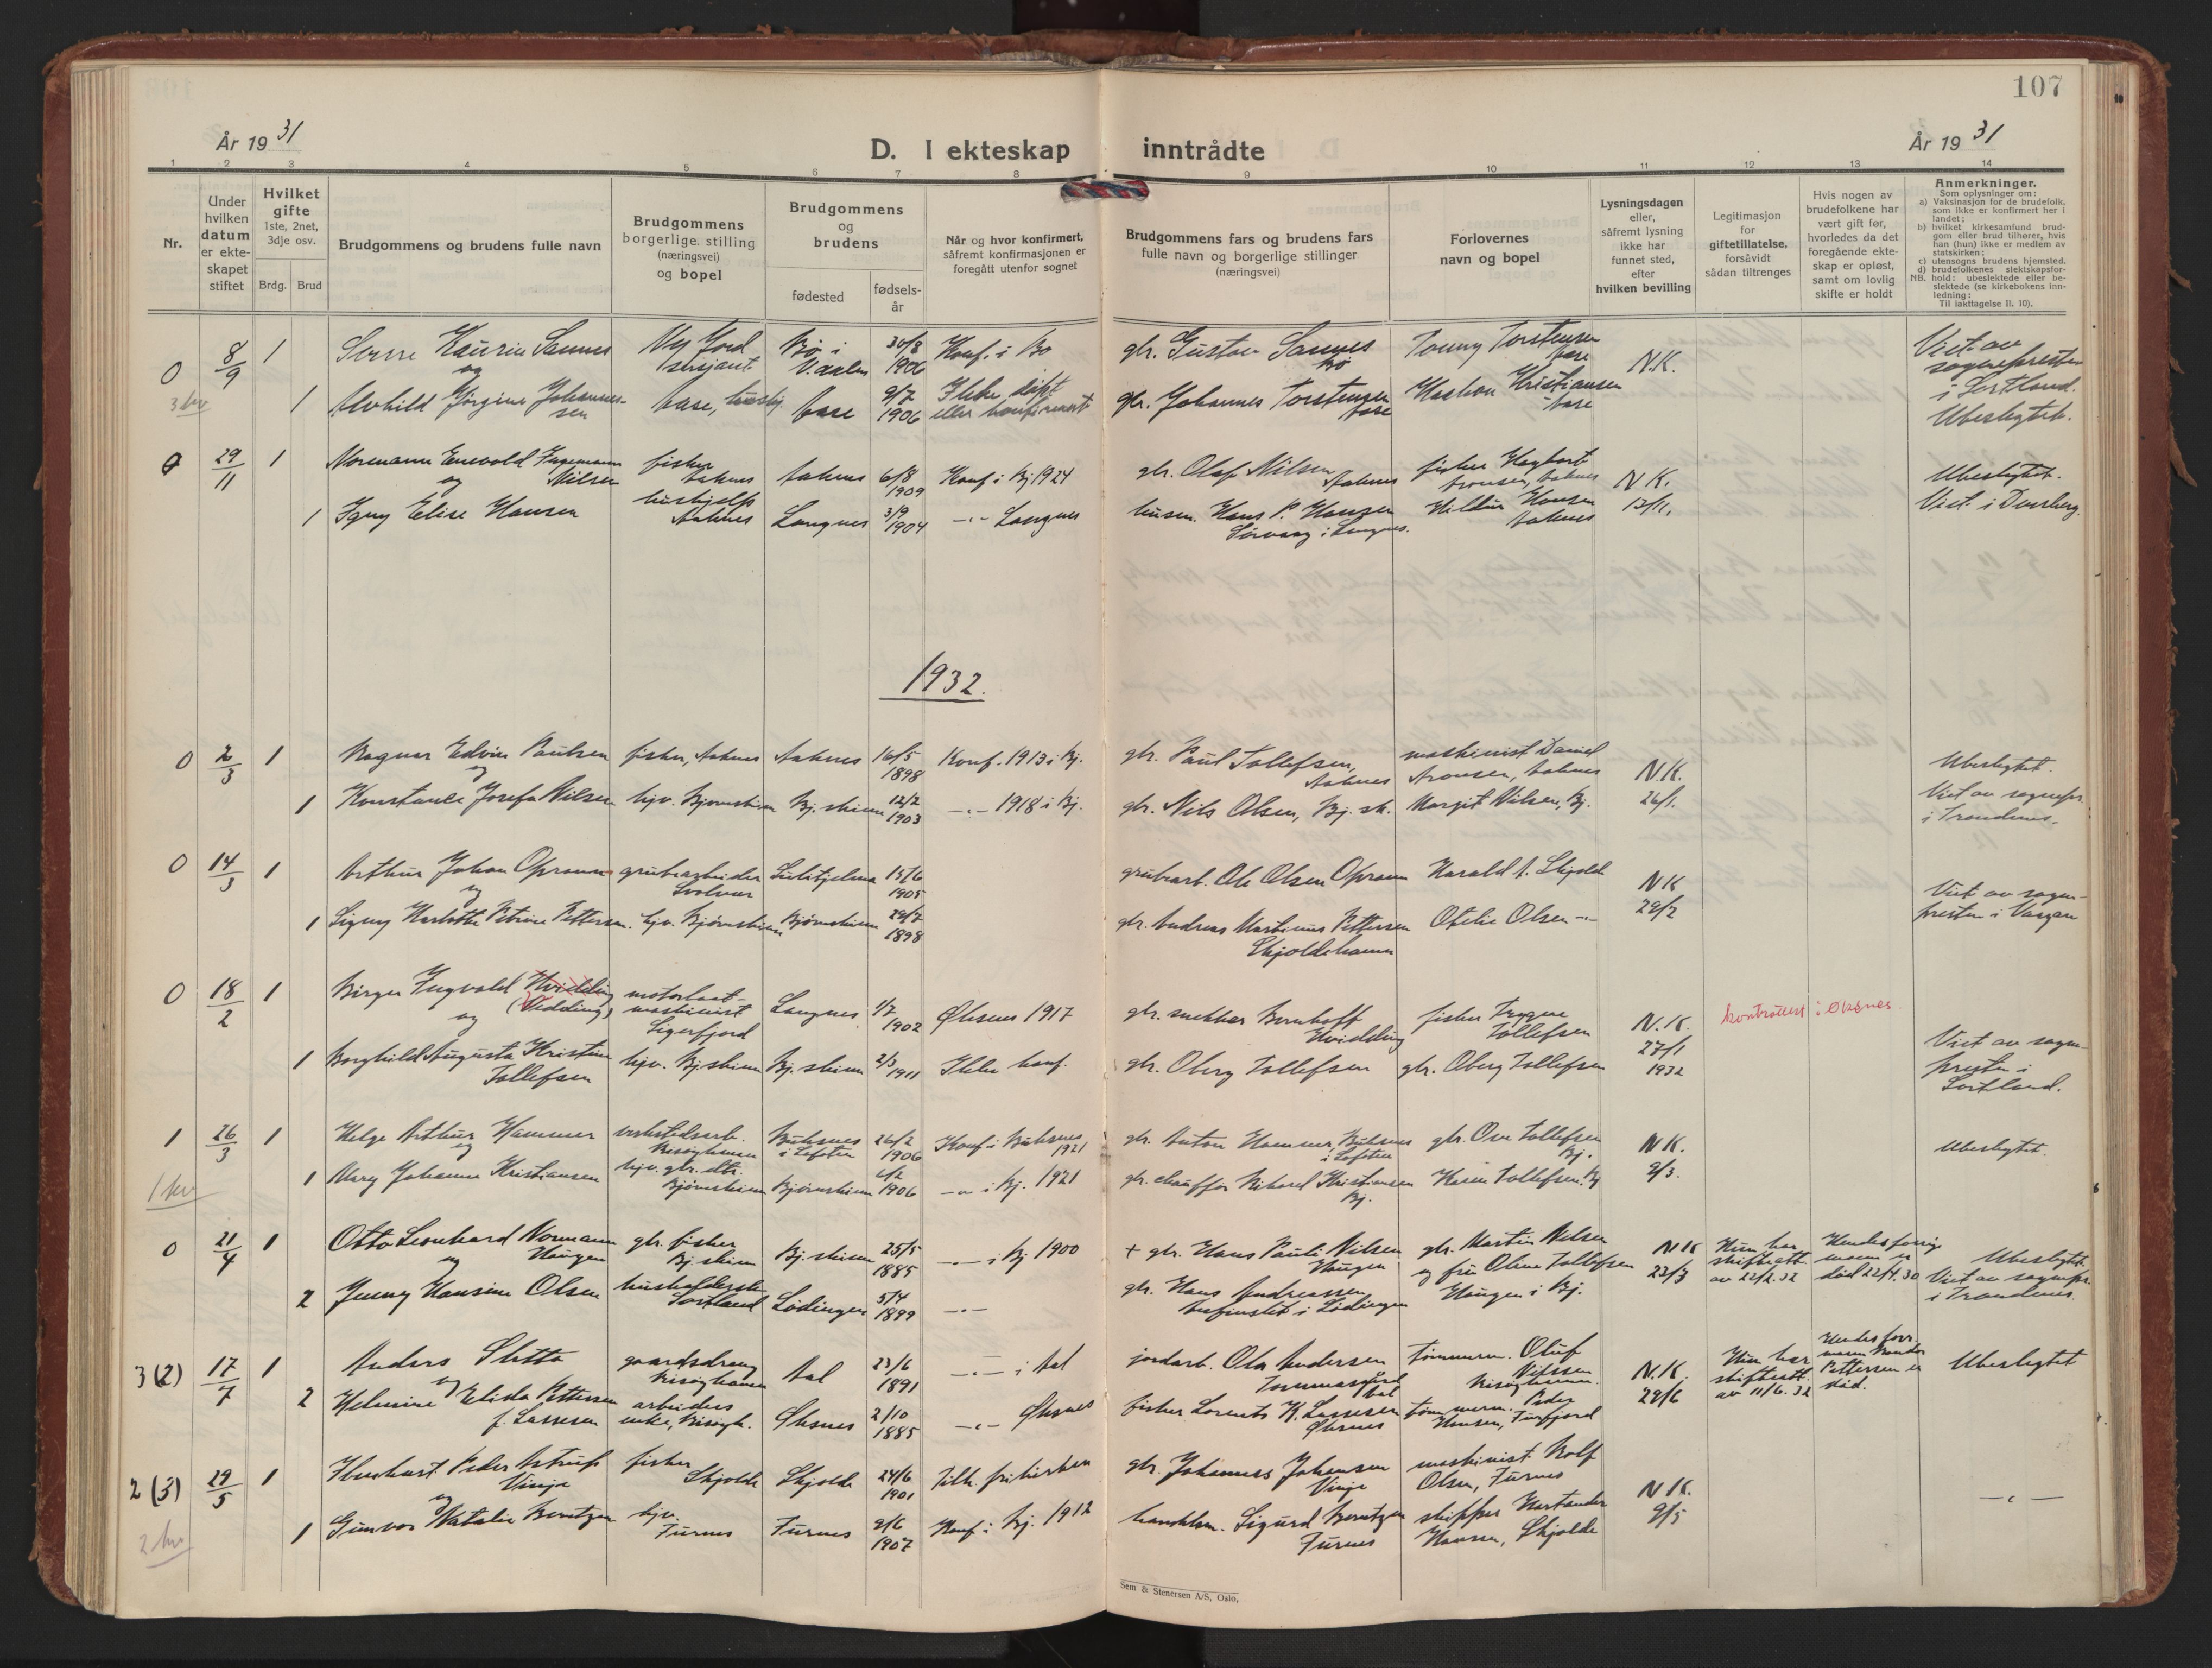 107
År 19 31
D. I ekteskap inntrådte
År 19 31
1 2 3 4 5 6 7 8 9 10 11 12 13 14
Nr.
Under
hvilken
datum
er ekte-
skapet
stiftet
Hvilket
gifte
1ste, 2net,
3dje osv.
Brdg. Brud
Brudgommens og brudens fulle navn
Brudgommens
borgerlige stilling
(næringsvei)
og bopel
Brudgommens
og
brudens
fødested
fødsels-
år
Når og hvor konfirmert,
såfremt konfirmasjonen er
foregått utenfor sognet
Brudgommens fars og brudens fars
fulle navn og borgerlige stillinger
(næringsvei)
Forlovernes
navn og bopel
Lysningsdagen
eller,
såfremt lysning
ikke har
funnet sted,
efter
hvilken bevilling
Legitimasjon
for
giftetillatelse,
forsåvidt
sådan tiltrenges
Hvis nogen av
brudefolkene har
vært gift før,
hvorledes da det
foregående ekte-
skap er opløst,
samt om lovlig
skifte er holdt
Anmerkninger.
Som oplysninger om:
a) Vaksinasjon for de brudefolk,
som ikke er konfirmert her i
landet;
b) hvilket kirkesamfund brud-
gom eller brud tilhører, hvis
han (hun) ikke er medlem av
statskirken;
c) utensogns brudens hjemsted.
d) brudefolkenes slektskapsfor-
NB. hold: ubeslektede eller be-
slektede (se kirkebokens inn-
ledning:
Til iakttagelse II. 10).
0 8/9 1 Kaurin Sannes
og
My Jord
Bø i
V.aalen
30/8
1906
Konf. i Bø
gbr. Gustav Sannes
Bø
Tonny Torstensen
Aase
N.K.
Viet av
sognepresten
i Sortland.
Ubeslegtet.
3 kv
1 Alvhild Jørgine Johannes-
sen
Aase,
Aase
9/7
1906
Ikke døpt
eller konfirmert
gbr. Johannes Torstensen
Aase
Haakon Kristiansen
Aase
0 29/11 1 Normann Enevold Ingemann
og Nilsen
fisker
Aaknes
Aaknes
6/8
1909
Konf i Bj 1924
gbr. Olaf Nilsen
Aaknes
fisker Hagbart
Aronsen, Aaknes
N.K.
13/11.
Ubeslegtet.
Viet i Dverberg.
1 Signy Elise Hansen
hushjelp
Aaknes
Langnes
3/9
1904
-"- Langnes
Hans P. Hansen
i Langnes.
Hildur Hansen
Aaknes
1932.
0 2/3 1 Ragnar Edvin Paulsen
og
fisker, Aaknes
Aaknes
16/5
1898
Konf. 1913 i Bj.
gbr. Paul Tollefsen,
Aaknes
maskinist Daniel
Aronsen, Aaknes
N.K.
26/1.
Ubeslegtet.
Viet av sognepr.
i Trondenes.
1 Konstanse Josefa Nilsen
hjv. Bjørnskinn
Bj.skinn
12/2
1903
-"- 1918 i Bj.
gbr. Nils Olsen, Bj. sk.
Margit Nilsen, Bj.
0 14/3 1 Arthur Johan
og
grubearbeider
Svolvær
Sulitjelma
15/6
1905
grubearb. Ole Olsen
Harald A. Skjolde
NK
29/2
Viet av sogne-
presten i Vaagan
1 Signy Charlotte Petrine Pettersen.
hjv. Bjørnskinn
Bjørnskinn
29/7
1898
gbr. Andreas Martinus Pettersen
Skjoldehamn
Otelie Olsen -"-
0 18/2 1 Birger Ingvald Hvidding
(Vidding)
og
motorbaat-
maskinist
Sigerfjord
Langnes
1/7
1902
Øksnes 1917
gbr. snekker Bernhoff
Hvidding
fisker Trygve
Tollefsen
N.K.
27/1
1932
kontrollert i Øksnes.
Viet av sogne-
presten i
Sortland.
1 Borghild Augusta Kristine
Tollefsen
hjv. Bj.skinn
Bj.skinn
2/3
1911
Ikke konf.
gbr. Oberg Tollefsen
gbr. Oberg Tollefsen
1 26/3 1 Helge Arthur Hammer
og
verkstedsarb.
Risøyhamn
Buksnes
i Lofoten
26/2
1906
Konf i Buksnes
1921
gbr. Anton Hammer, Buksnes
i Lofoten
gbr. Ove Tollefsen
Bj.
NK.
9/3.
Ubeslegtet.
1 kv
1 Mary Johanne Kristiansen
hjv. gbr. dtr.
Bjørnskinn
Bjørnskinn
6/2
1906
-"- i Bj. 1921
gbr. chauffør Rikard Kristiansen
Bj.
Karen Tollefsen. Bj
0 21/4 1 Otto Leonhard Normann
og Haugen
gbr. fisker
Bj.skinn
Bj.skinn
25/5
1885
-"- i Bj 1900
+ gbr. Hans Pauli Nilsen
Haugen
gbr. Martin Nilsen
og fru Oline Tollefsen
Haugen i Bj.
NK
23/3
Hun har
skifteatt.
av 22/2. 32
Hendes forrige
mann er
død 22/4. 30
Ubeslegtet.
Viet av sognepr.
i Trondenes.
2 Jenny Hansine Olsen
husholderske
Sortland
Lødingen
5/4
1899
-"-
gbr. Hans Andreassen
i Lødingen
3(2) 17/7 1 Anders Sletto
og
gaardsdreng
Risøyhamn
Aal
23/6
1891
-"- i Aal
jordarb. Ola Andersen
Aal
tømmerm. Oluf
Nilssen
Risøyhamn.
N.K.
29/6
Hun har
skifteatt.
av 11/6. 32
Hendes forr.
mann
Pettersen er
død.
Ubeslegtet
2 Helmine Elida Pettersen
f. Lassesen
arbeiders
enke, Risøyh.
Øksnes
2/10
1885
-"- Øksnes
fisker Lorents K. Lassesen
Øksnes
tømmerm. Peder
Hansen, Furfjord
2(3) 29/5 1 Peder Astrup
og Vinje
fisker
Skjolde
Skjolde
24/6
1901
Tilh. frikirken
gbr. Johannes Johansen
Vinje
maskinist Rolf
Olsen, Furnes
NK.
9/5
-"-
2 kv
1 Gunvor Natalie Berntzen
hjv.
Furnes
Furnes
9/6
1907
Konf i Bj. 1912
handelsm. Sigurd Berntzen
Furnes
skipper
Hansen, Skjolde
Sem & Stenersen A/S, Oslo.